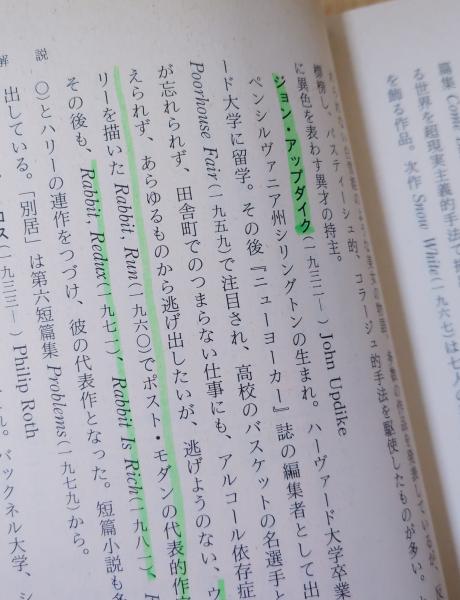 篇集 Come
る世界を超現実主義的手法で
を飾る作品。次作 Snow White(一九六七)は七人の
標榜し、パスティーシュ的、コラージュ的手法を駆使したものが多い。
に異色を表わす異才の持主。
ジョン・アップダイク(一九三二―) John Updike
ペンシルヴァニア州シリングトンの生まれ。ハーヴァード大学卒業
ード大学に留学。その後『ニューヨーカー』誌の編集者として出
Poorhouse Fair(一九五九)で注目され、高校のバスケットの名選手と
が忘れられず、田舎町でのつまらない仕事にも、アルコール依存症
えられず、あらゆるものから逃げ出したいが、逃げようのない、ウ
リーを描いた Rabbit, Run(一九六〇)でポスト・モダンの代表的作
その後も、Rabbit, Redux(一九七一)、Rabbit Is Rich(一九八一)、
〇)とハリーの連作をつづけ、彼の代表作となった。短篇小説も多
出している。「別居」は第六短篇集 Problems(一九七九)から。
ロス(一九三三―) Philip Roth
バックネル大学、シ
解説